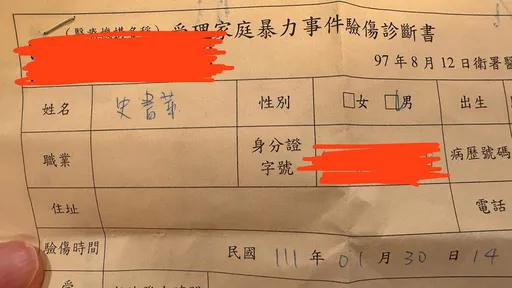 (醫療機構名稱) 受理家庭暴力事件驗傷診斷書
97年8月12日衛署醫
姓名 史書華 性別 □女 □男 出生
職業 身分證字號 病歷號碼
住址 電話
驗傷時間 民國 111 年 01 月 30 日 14
受